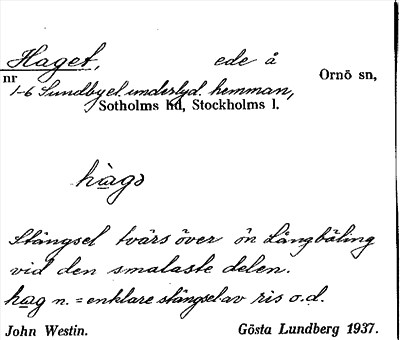 Haget, ede å
nr Ornö sn,
1-6 Sundby el. underlyd. hemman,
Sotholms hd, Stockholms l.
hagə
Stängsel tvärs över ön Långbäling
vid den smalaste delen.
hag n. = enklare stängsel av ris o.d.
John Westin. Gösta Lundberg 1937.